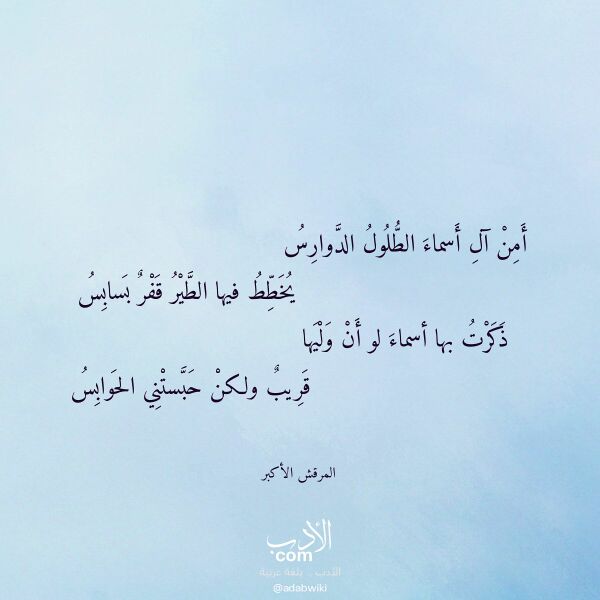 أَمِنْ آلِ أَسماءَ الطُّلُولُ الدَّوارِسُ
يُخَطِّطُ فيها الطَّيْرُ قَفْرٌ بَسابِسُ
ذَكَرْتُ بها أسماءَ لو أَنْ وَلْيَها
قَرِيبٌ ولكنْ حَبَّستْنِي الحَوابِسُ
المرقش الأكبر
الأدب
com
الأدب .. بلغة عربية
@adabwiki